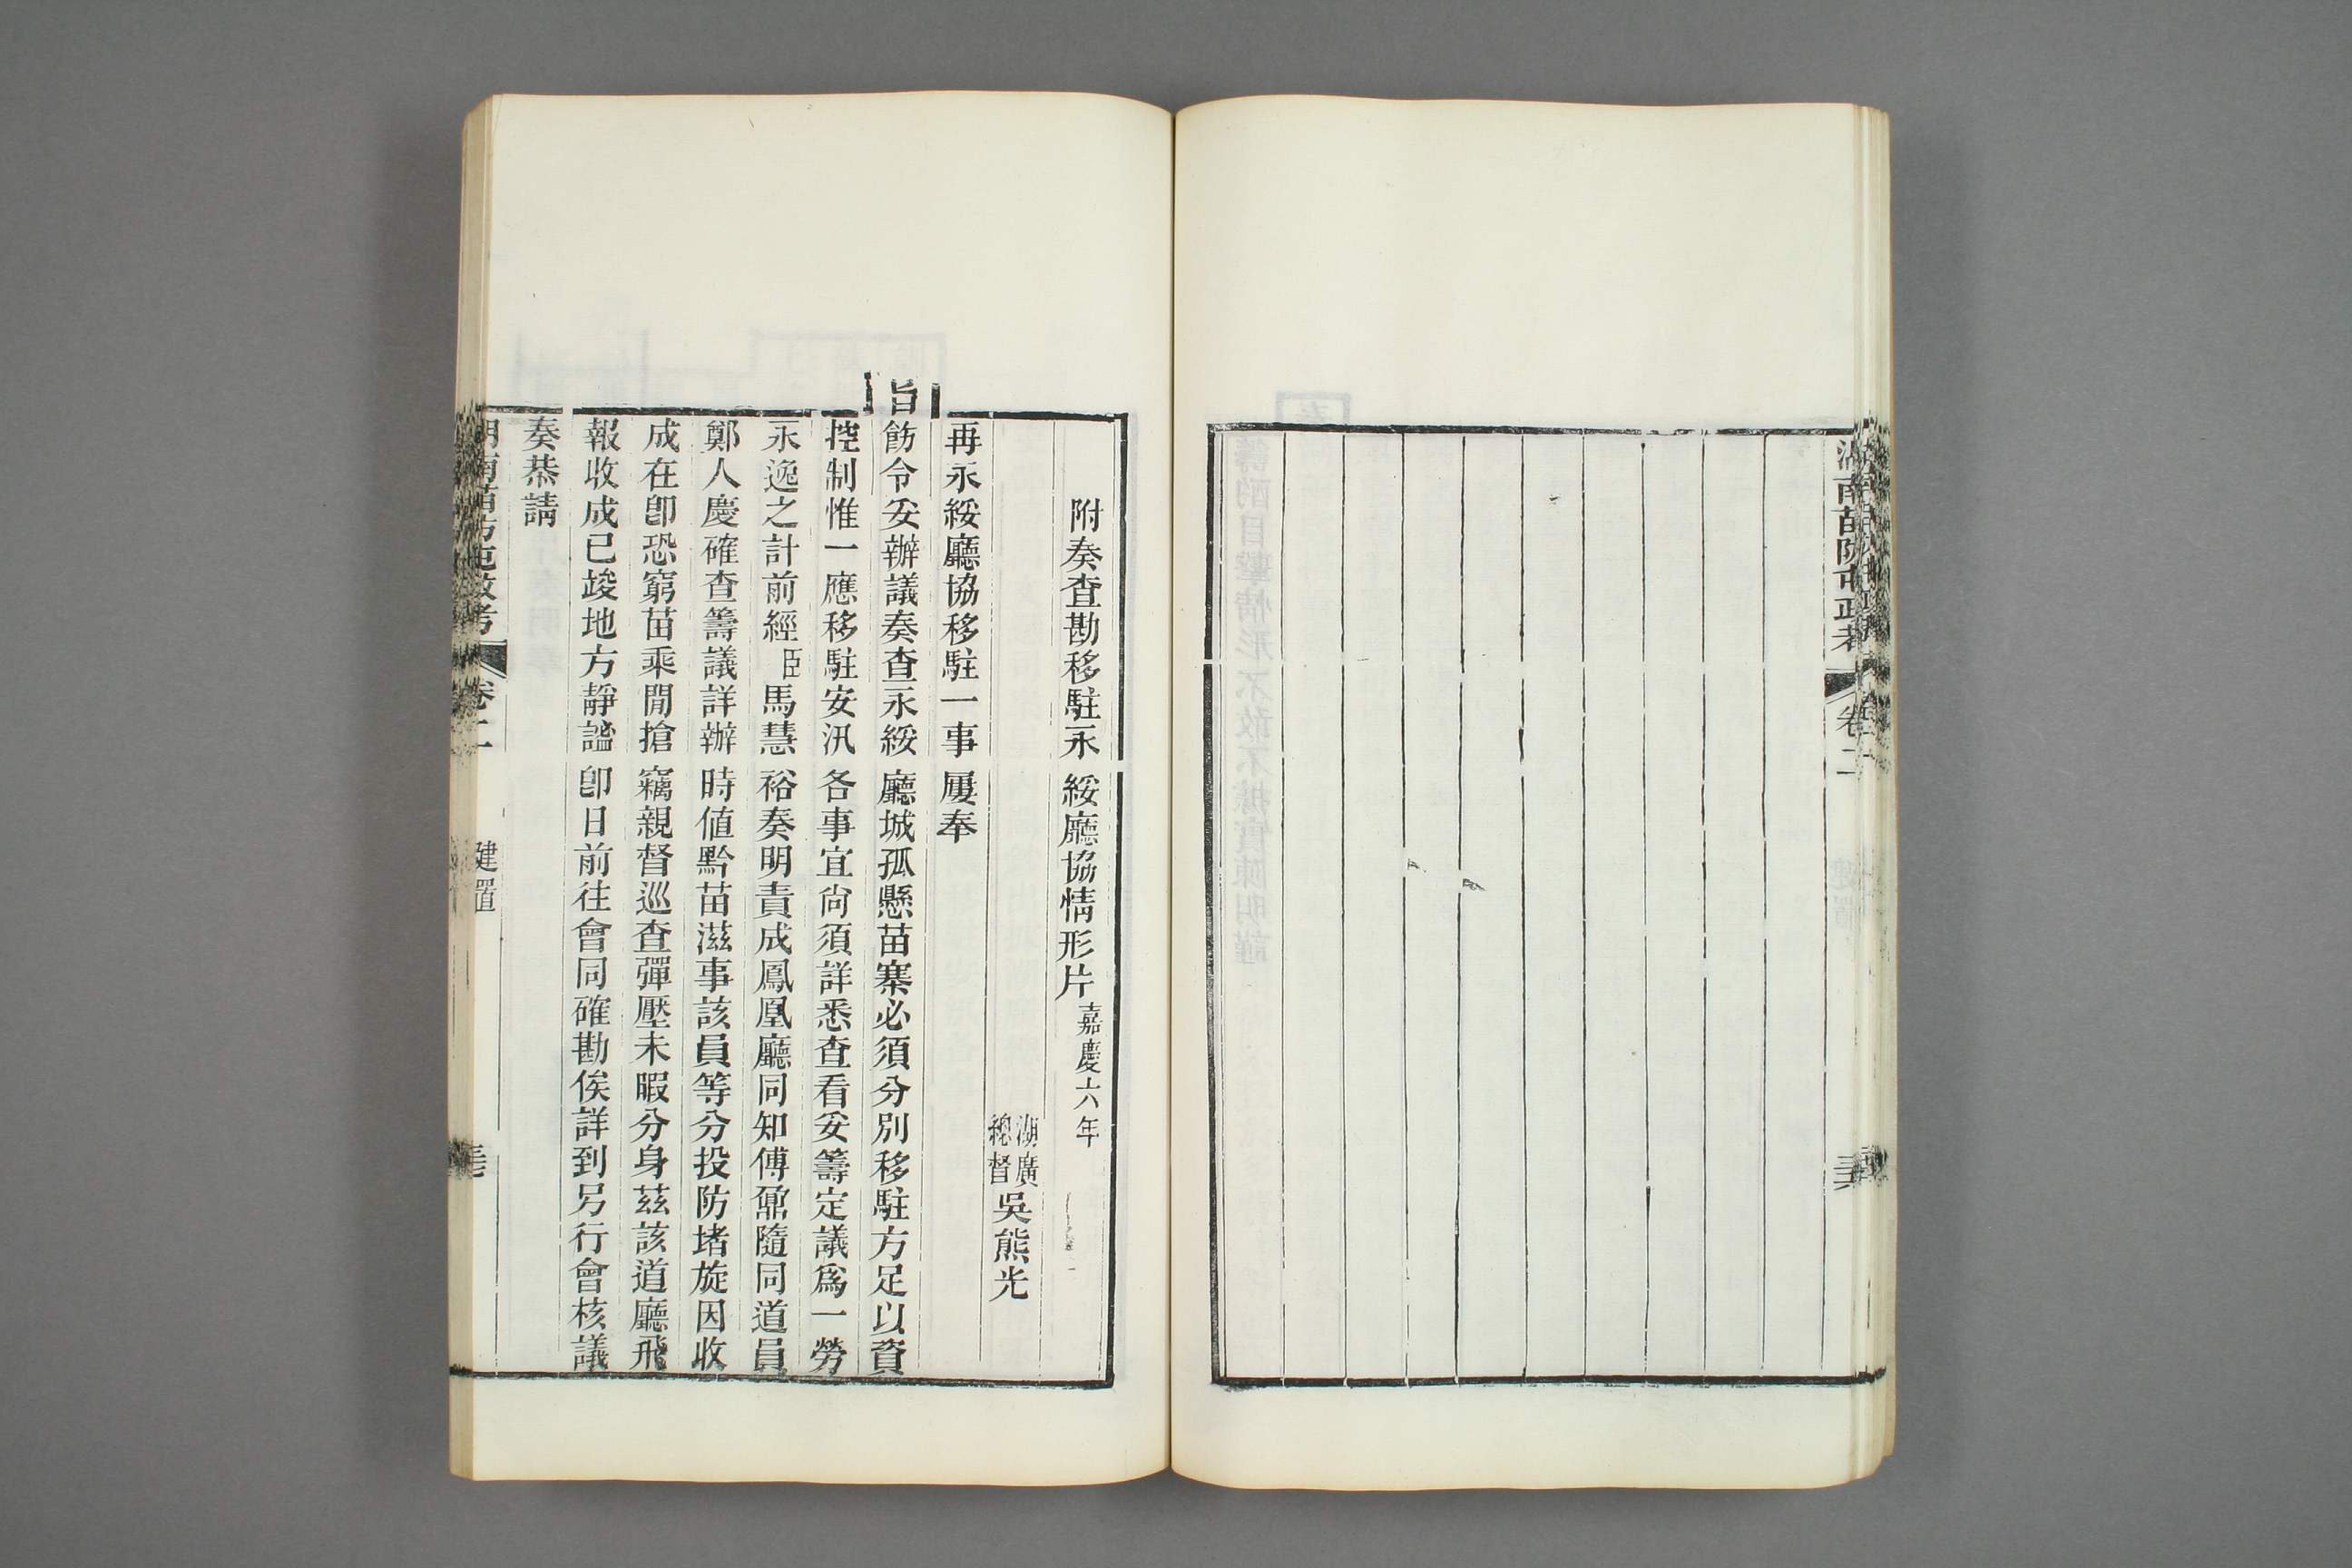 湖南苗防屯政考
卷二
附奏查勘移駐永綏廳協情形片嘉慶六年
湖廣總督吳熊光
再永綏廳協移駐一事屢奉
旨飭令妥辦議奏查永綏廳城孤懸苗寨必須分別移駐方足以資
控制惟一應移駐安汛各事宜尙須詳悉查看妥籌定議爲一勞
永逸之計前經臣馬慧裕奏明責成鳳凰廳同知傅鼐隨同道員
鄭人慶確查籌議詳辦時値黔苗滋事該員等分投防堵旋因收
成在卽恐窮苗乘閒搶竊親督巡查彈壓未暇分身茲該道廳飛
報收成已竣地方靜謐卽日前往會同確勘俟詳到另行會核議
奏恭請
湖南苗防屯政考
卷二
建置